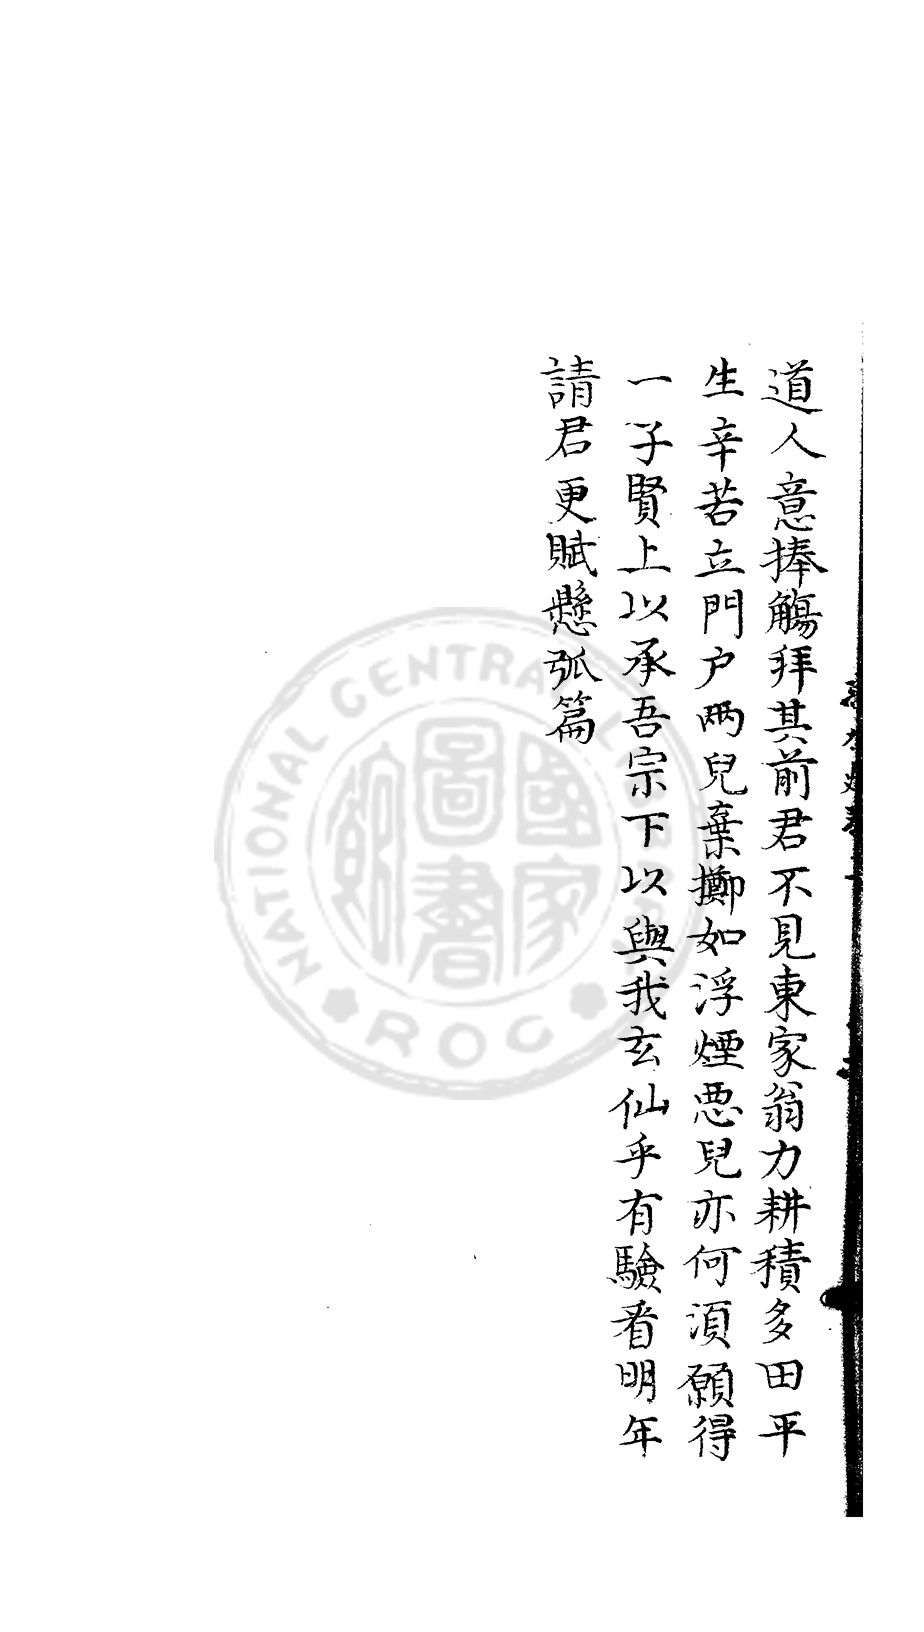 道人意捧觴拜其前君不見東家翁力耕積多田平
生辛苦立門户兩兒棄擲如浮煙惡兒亦何湏願得
一子賢上以承吾宗下以與我玄仙乎有驗看明年
請君更賦懸弧篇
NATIONAL CENTRAL LIBRARY
ROC
國家圖書館